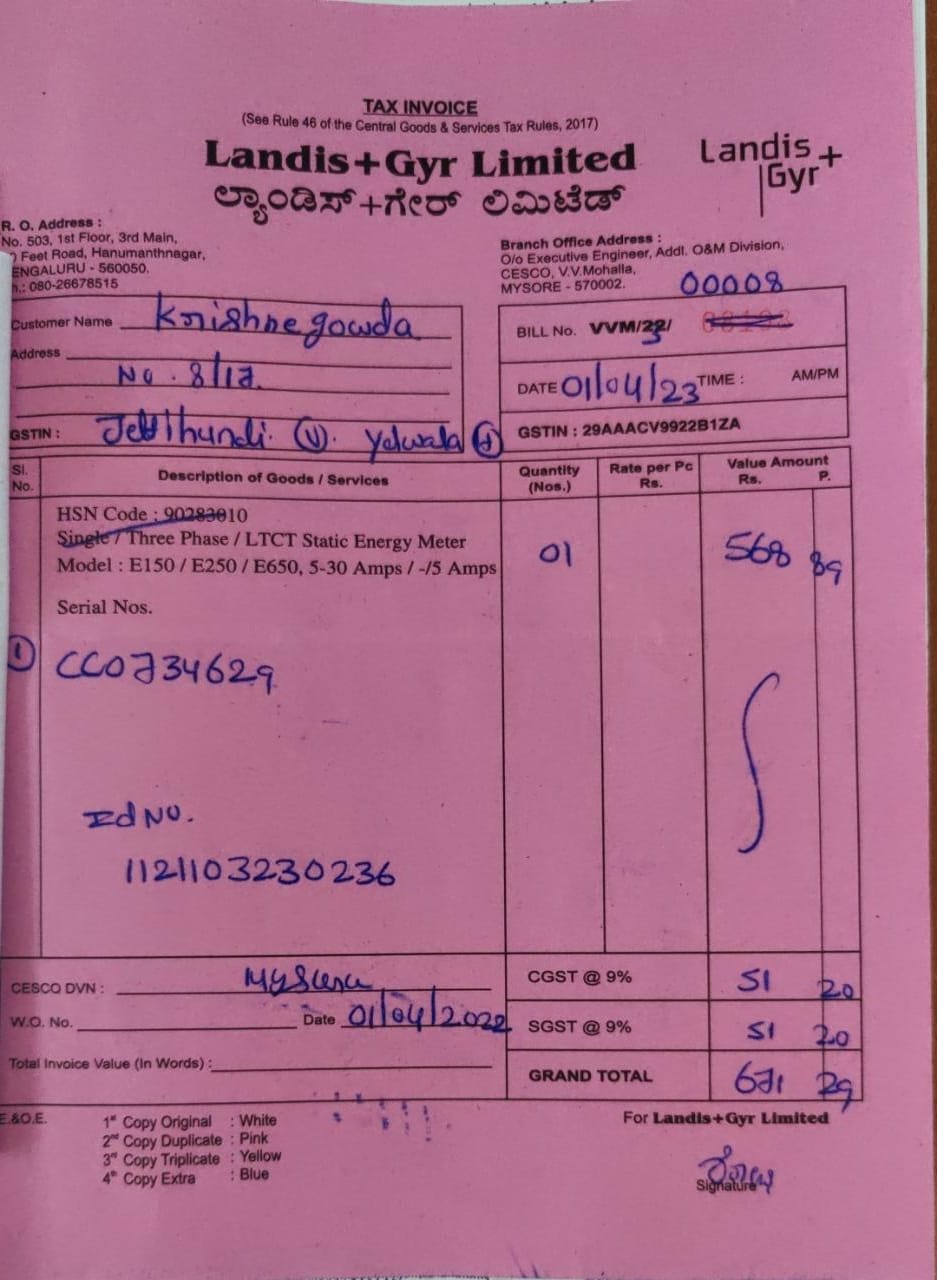 TAX INVOICE
(See Rule 46 of the Central Goods & Services Tax Rules, 2017)
Landis+Gyr Limited
ಲ್ಯಾಂಡಿಸ್+ಗೇರ್ ಲಿಮಿಟೆಡ್
Landis+
Gyr
R. O. Address :
No. 503, 1st Floor, 3rd Main,
Feet Road, Hanumanthnagar,
ENGALURU - 560050.
080-26678515
Branch Office Address :
O/o Executive Engineer, Addl. O&M Division,
CESCO, V.V.Mohalla,
MYSORE - 570002.
00008
Customer Name Krishnegowda
Address
No. 8/17
GSTIN : Jettihundi (V). Yelwala (H)
BILL No. VVM/23/
DATE 01/04/23 TIME : AM/PM
GSTIN : 29AAACV9922B1ZA
Sl. No. Description of Goods / Services Quantity (Nos.) Rate per Pc Rs. Value Amount Rs. P.
HSN Code : 90283010
Single / Three Phase / LTCT Static Energy Meter 01 568 89
Model : E150 / E250 / E650, 5-30 Amps / -/5 Amps
Serial Nos.
1 CC0734629
Id No.
1121103230236
CESCO DVN : Mysuru
W.O. No. Date 01/04/2022
Total Invoice Value (In Words) :
CGST @ 9% 51 20
SGST @ 9% 51 20
GRAND TOTAL 671 29
E.&O.E.
1st Copy Original : White
2nd Copy Duplicate : Pink
3rd Copy Triplicate : Yellow
4th Copy Extra : Blue
For Landis+Gyr Limited
Signature